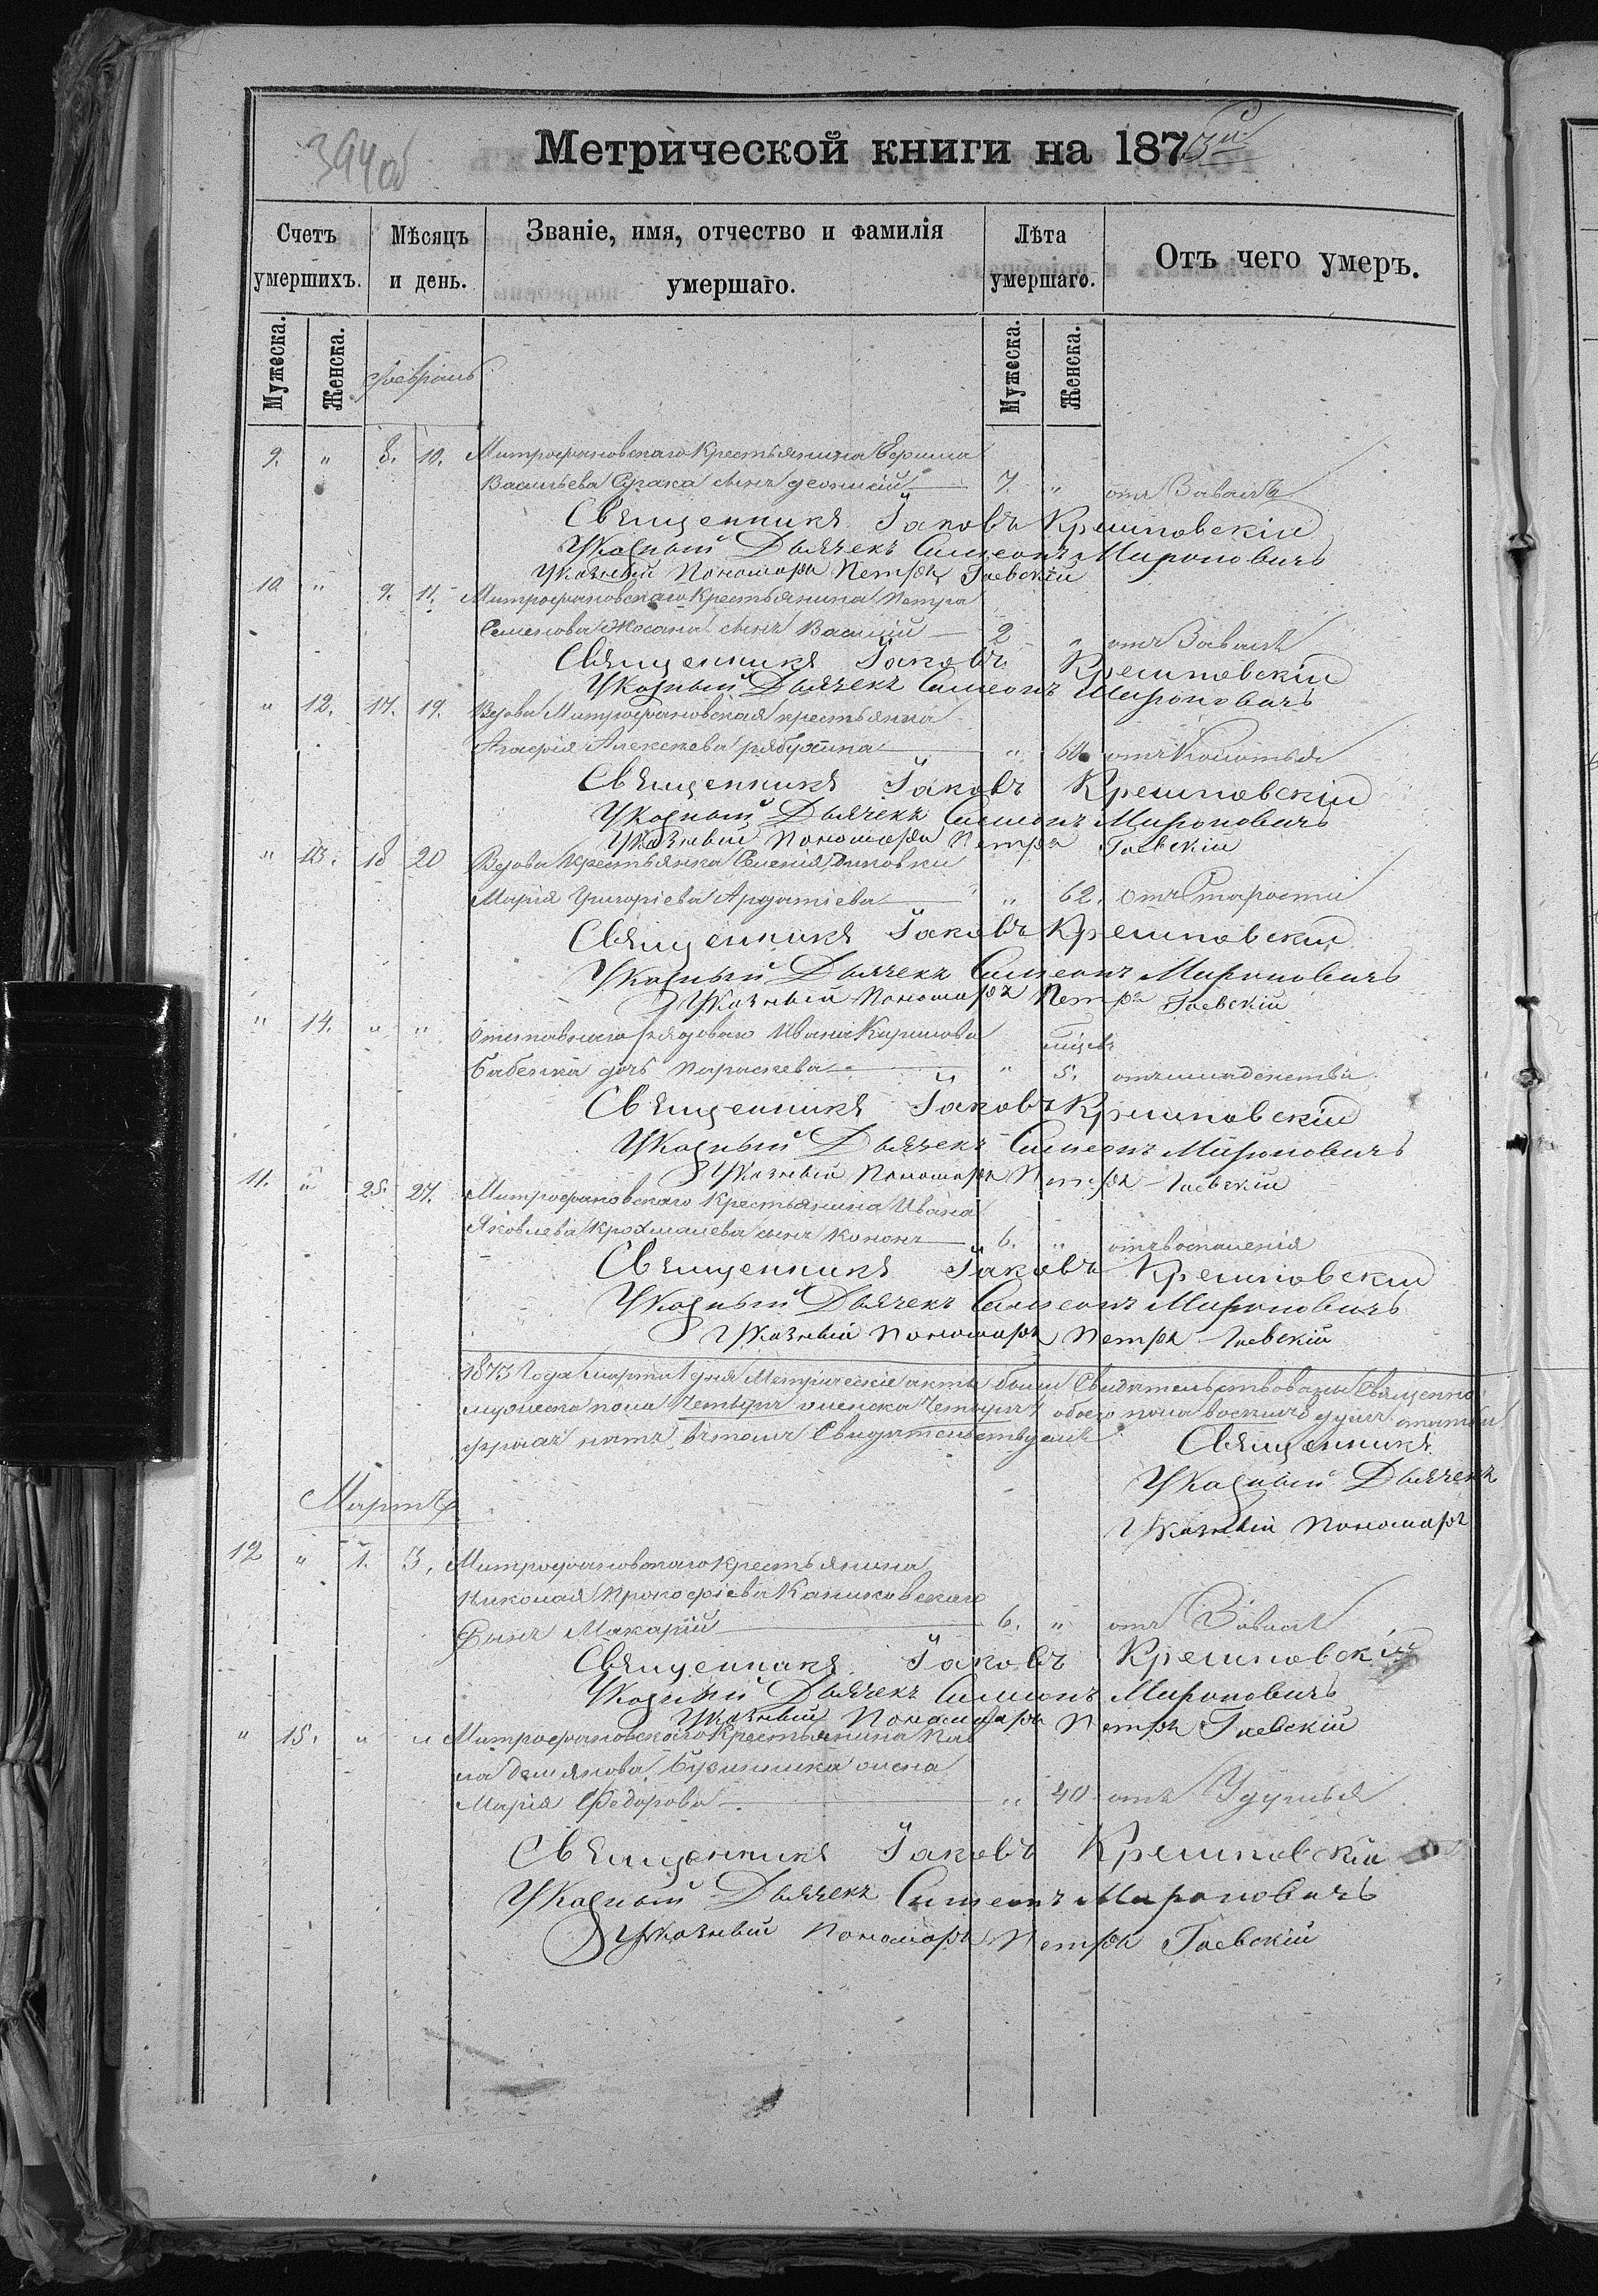 394об
Метрической книги на 1873й
Счетъ умершихъ.
Мѣсяцъ и день.
Званіе, имя, отчество и фамилія умершаго.
Лѣта умершаго.
Отъ чего умеръ.
Мужеска.
Женска.
Мужеска.
Женска.
Февраль
9. " 8. 10. Митрофановскаго Крестьянина
Васильева сынъ 7. " отъ Завалъ
Священникъ Іаковъ Крешповскій
Указный Дьячекъ Симеонъ Мироновичъ
Указный Пономарь Петръ Гаевскій
10. " 9. 11. Митрофановскаго Крестьянина Петра
Семенова Жосана сынъ Василій 2 " отъ Завалъ
Священникъ Іаковъ Крешповскій
Указный Дьячекъ Симеонъ Мироновичъ
" 12. 17. 19. Вдова Митрофановская крестьянка
Агафія Алексеева рябухина " 60. отъ Колотья
Священникъ Іаковъ Крешповскій
Указный Дьячекъ Симеонъ Мироновичъ
Указный Пономарь Петръ Гаевскій
" 13. 18 20 Вдова Крестьянка Селенія
Марія Григоріева " 62. отъ Старости
Священникъ Іаковъ Крешповскій
Указный Дьячекъ Симеонъ Мироновичъ
Указный Пономарь Петръ Гаевскій
" 14. " " отставнаго рядоваго Ивана Кирилова мѣсяцъ
бабенка дочь Параскева " 5. отъ младенства
Священникъ Іаковъ Крешповскій
Указный Дьячекъ Симеонъ Мироновичъ
Указный Пономарь Петръ Гаевскій
11. " 25. 27. Митрофановскаго Крестьянина Ивана
Яковлева Крохмалева сынъ Кононъ 6. " отъ воспаленія
Священникъ Іаковъ Крешповскій
Указный Дьячекъ Симеонъ Мироновичъ
Указный Пономарь Петръ Гаевскій
1873 Года Марта 1 дня Метрическіе акты были Свидѣтельствованы Священно
мужеска пола Четыри женска Четыри обоего пола восемь душъ
въ томъ Свидѣтельствуемъ Священникъ
Указный Дьячекъ
Указный Пономарь
Мартъ
12 " 1. 3. Митрофановскаго крестьянина
Николая Прокофіева
Сынъ Макарій 6. " отъ Завалъ
Священникъ Іаковъ Крешповскій
Указный Дьячекъ Симеонъ Мироновичъ
Указный Пономарь Петръ Гаевскій
" 15. " " Митрофановскаго Крестьянина Пав
ла Демянова жена
Марія Федорова " 40 отъ Удушья
Священникъ Іаковъ Крешповскій
Указный Дьячекъ Симеонъ Мироновичъ
Указный Пономарь Петръ Гаевскій